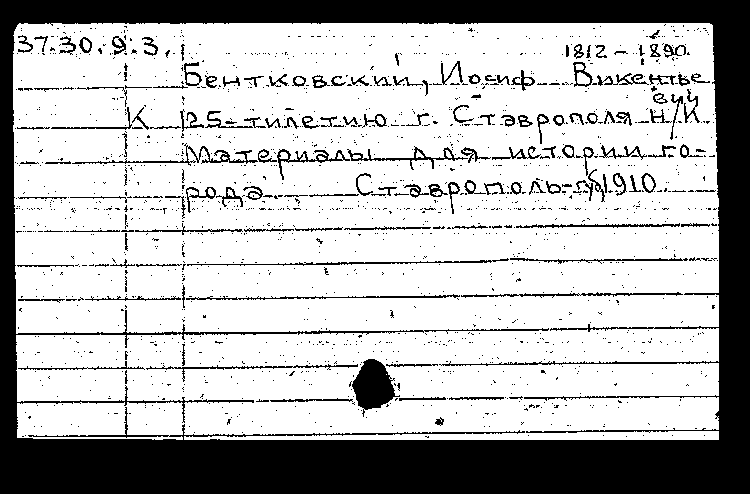 37.30.9.3. 1812 – 1890.
Бентковский, Иосиф Викентье
вич
К 25-тилетию г. Ставрополя н/К
Материалы для истории го-
рода Ставрополь- 1910.